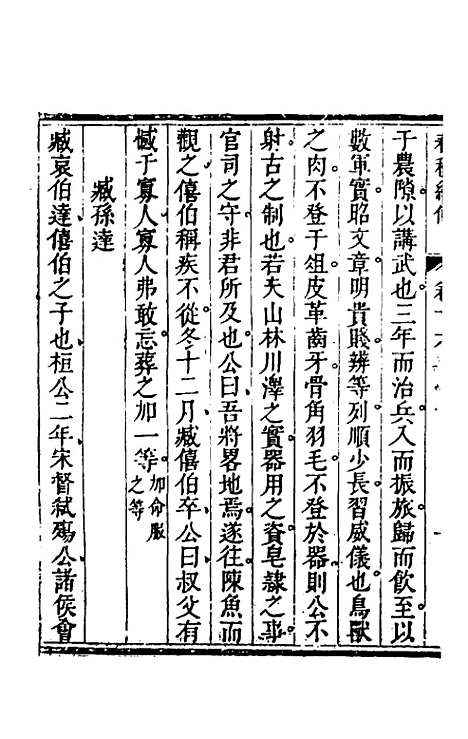 于農隙以講武也三年而治兵入而振旅歸而飲至以
數軍實昭文章明貴賤辨等列順少長習威儀也鳥獸
之肉不登于俎皮革齒牙骨角羽毛不登於器則公不
射古之制也若夫山林川澤之實器用之資皂隸之事
官司之守非君所及也公曰吾將畧地焉遂往陳魚而
觀之僖伯稱疾不從冬十二月臧僖伯卒公曰叔父有
憾于寡人寡人弗敢忘葬之加一等加命服之等
臧孫達
臧哀伯達僖伯之子也桓公二年宋督弑殤公諸侯會